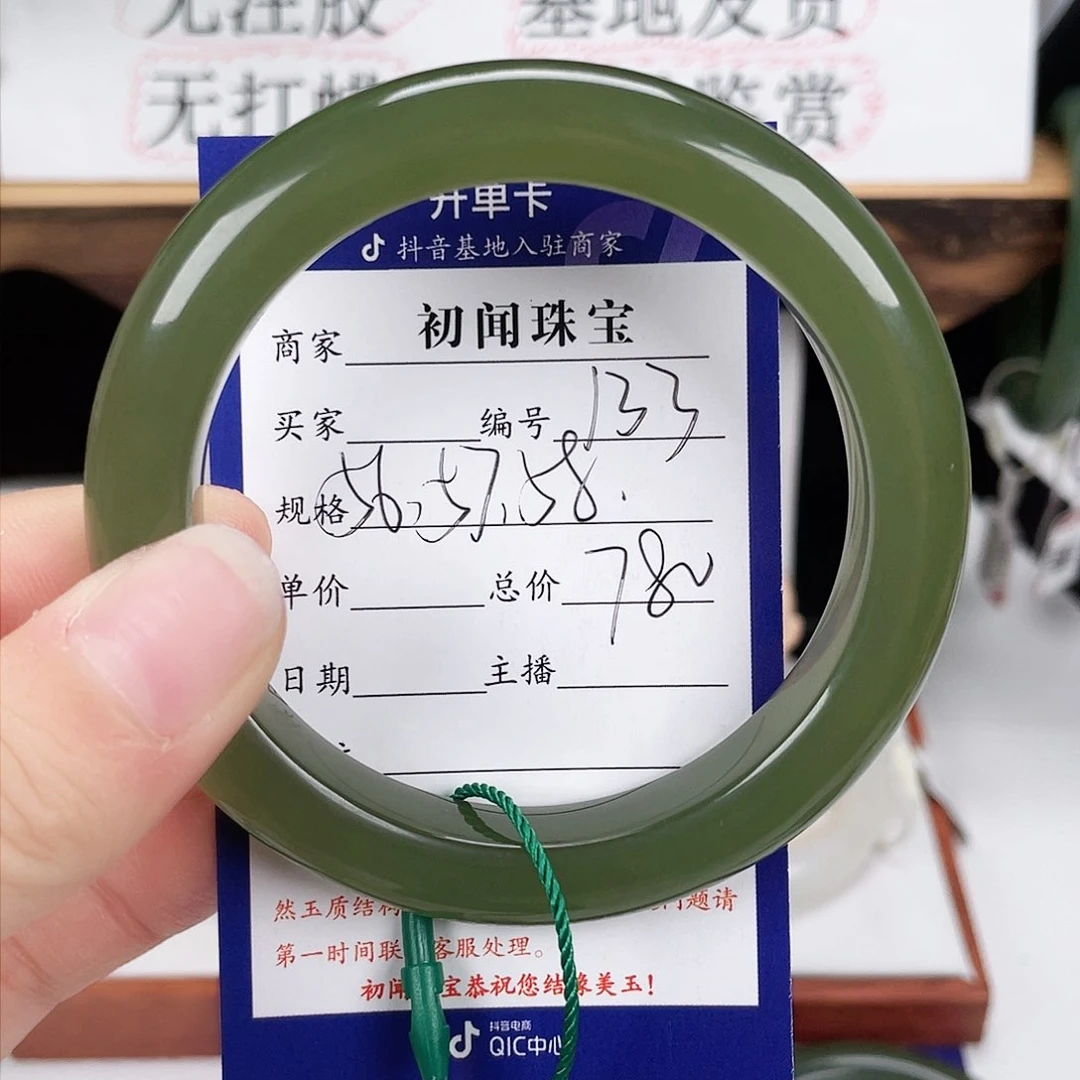 无注胶 基地发货
无打蜡 鉴赏
开单卡
抖音基地入驻商家
商家 初闻珠宝
买家 编号 133
规格 56,57,58.
单价 总价 780
日期 主播
然玉质结构 问题请
第一时间联 客服处理。
初闻 宝恭祝您结缘美玉!
抖音电商
QIC中心